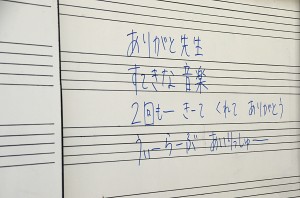 ありがと先生
すてきな音楽
2回もーきーて くれて ありがとう
うぃーらーぶ